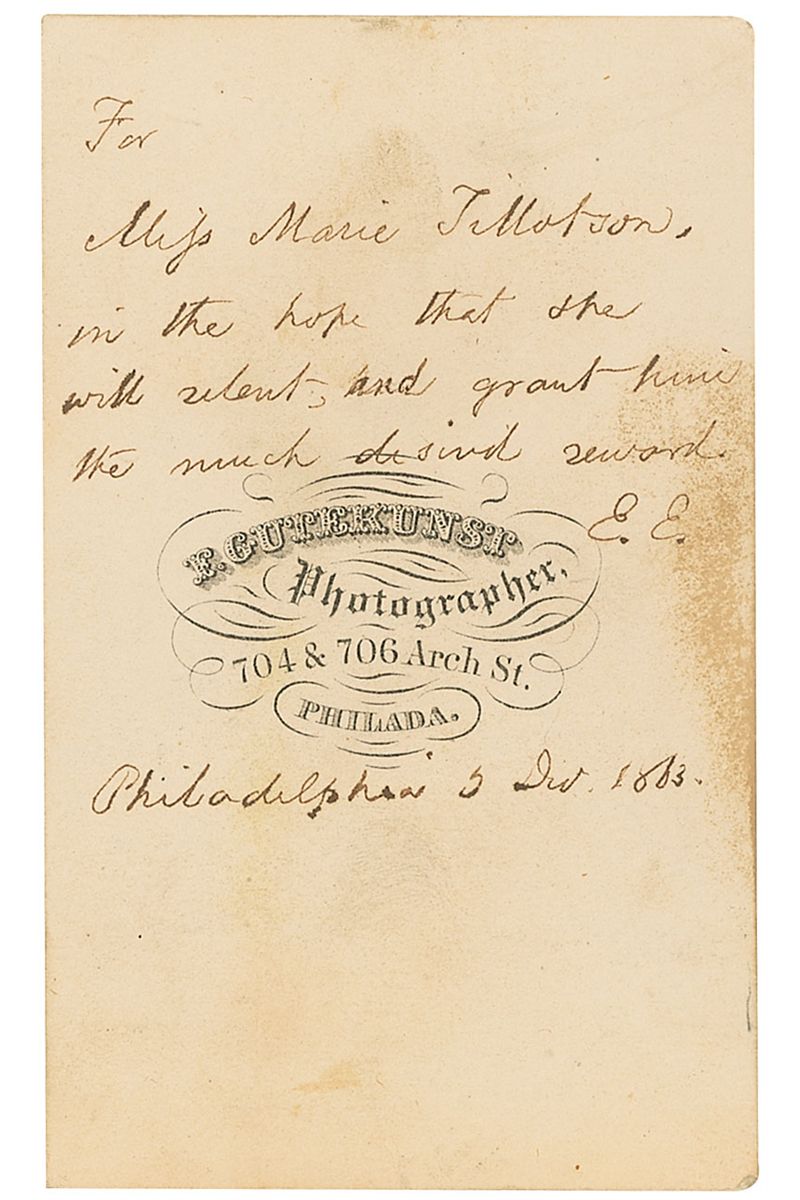 For
Miss Marie Tillotson,
in the hope that she
will relent, and grant him
the much desird reward.
E. E.
F. GUTEKUNST
Photographer,
704 & 706 Arch St.
PHILADA.
Philadelphia 5 Dec. 1863.